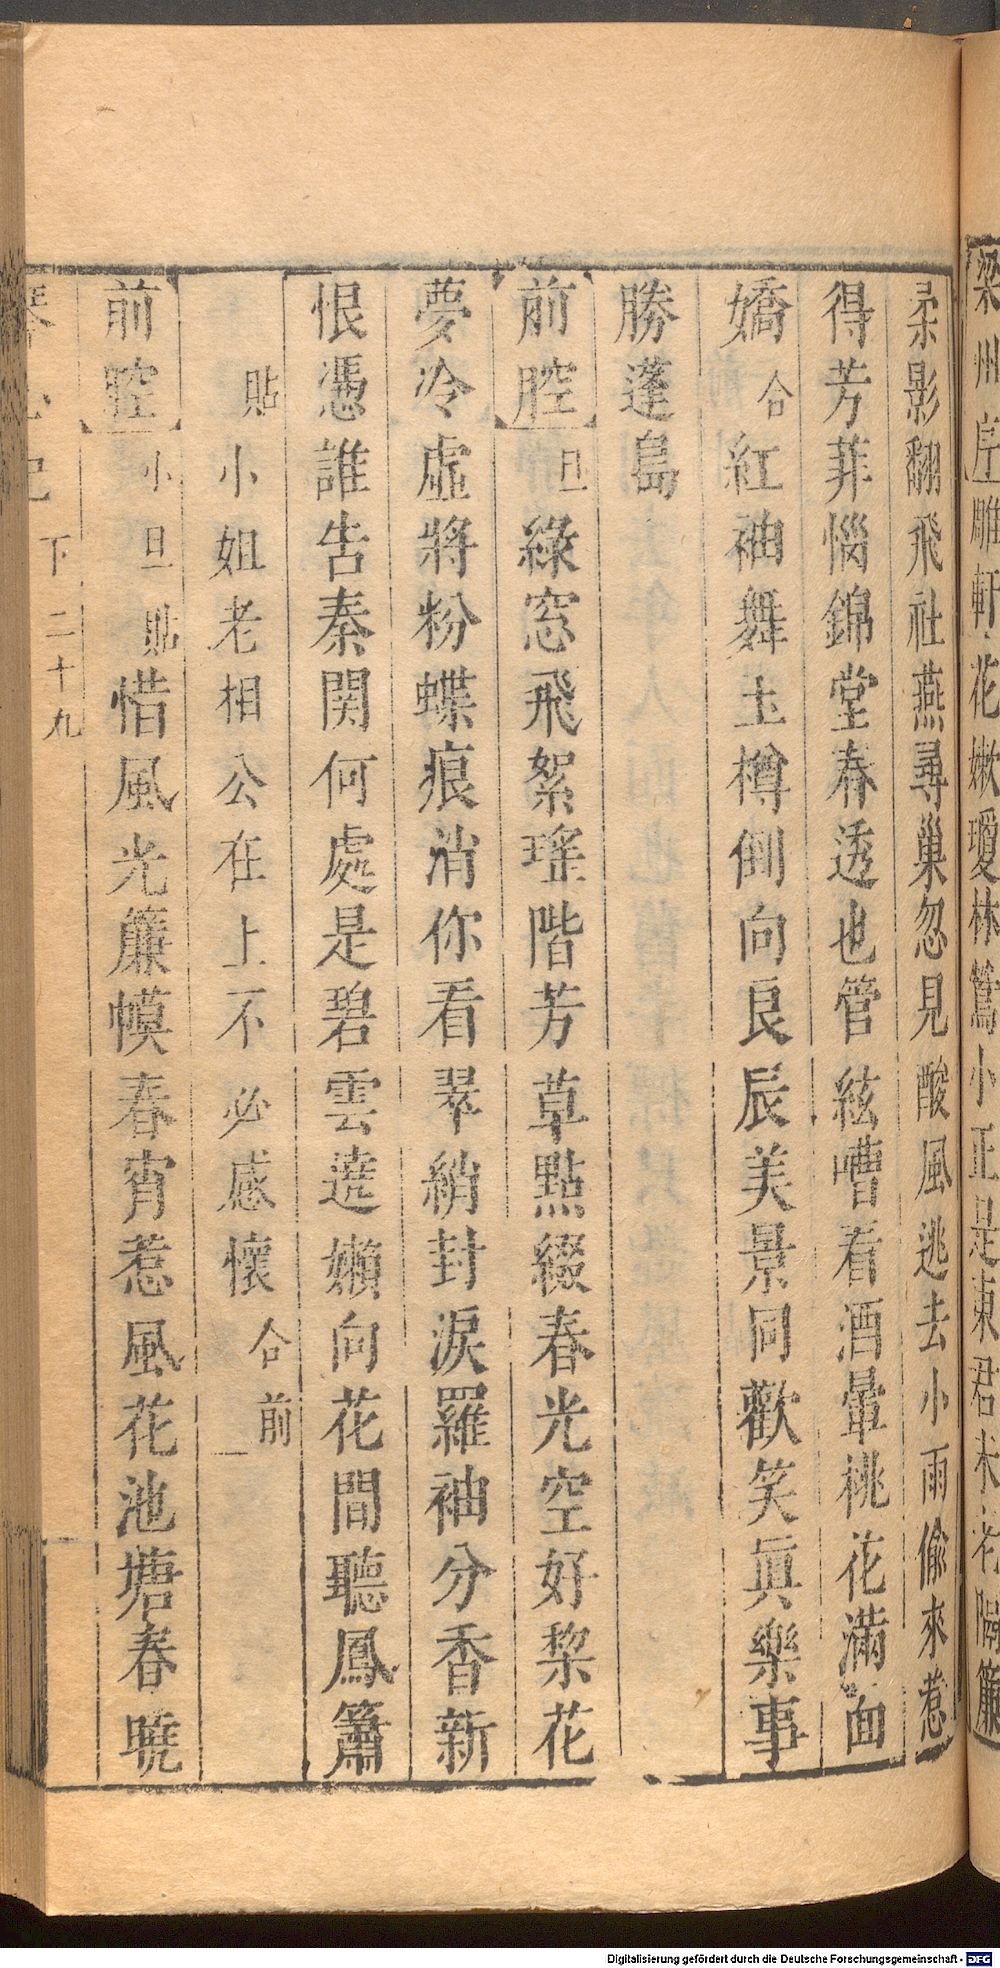 梁州序雕軒花嫩瓊林鶯小正是東君未老隔簾
柔影翻飛社燕尋巢忽見酸風逃去小雨偷來惹
得芳菲惱錦堂春透也管絃嘈看酒暈桃花滿面
嬌合紅袖舞玉樽倒向良辰美景同歡笑眞樂事
勝蓬島
前腔旦綠窓飛絮瑤階芳草點綴春光空好棃花
夢冷虛將粉蝶痕消你看翠綃封淚羅袖分香新
恨憑誰告秦關何處是碧雲遶嬾向花間聽鳳簫
貼小姐老相公在上不必感懷合前
前腔小旦貼惜風光簾幙春宵惹風花池塘春曉
下二十九
Digitalisierung gefördert durch die Deutsche Forschungsgemeinschaft - DFG